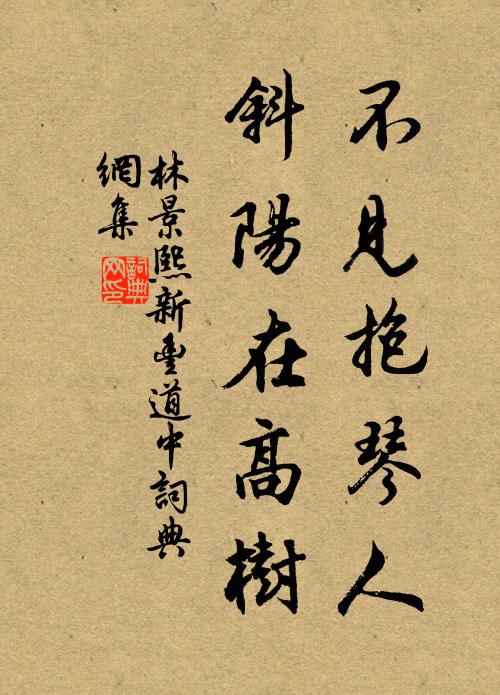 不見抱琴人
斜陽在高樹
林景熙新豐道中詞典
網集
詞典
网印